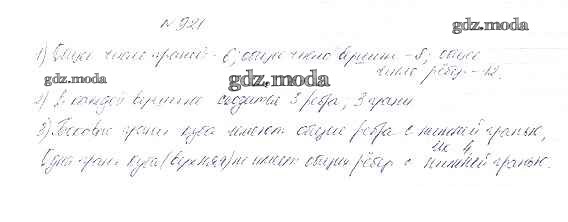 № 921
gdz.moda
1) Общее число граней - 6; общее число вершин - 8; общее
число рёбер - 12.
gdz.moda
gdz.moda
2) В каждой вершине сходится 3 ребра, 3 грани
3) Боковые грани куба имеют общие ребра с нижней гранью,
их 4.
Одна грань куба (верхняя) не имеет общих рёбер с нижней гранью.